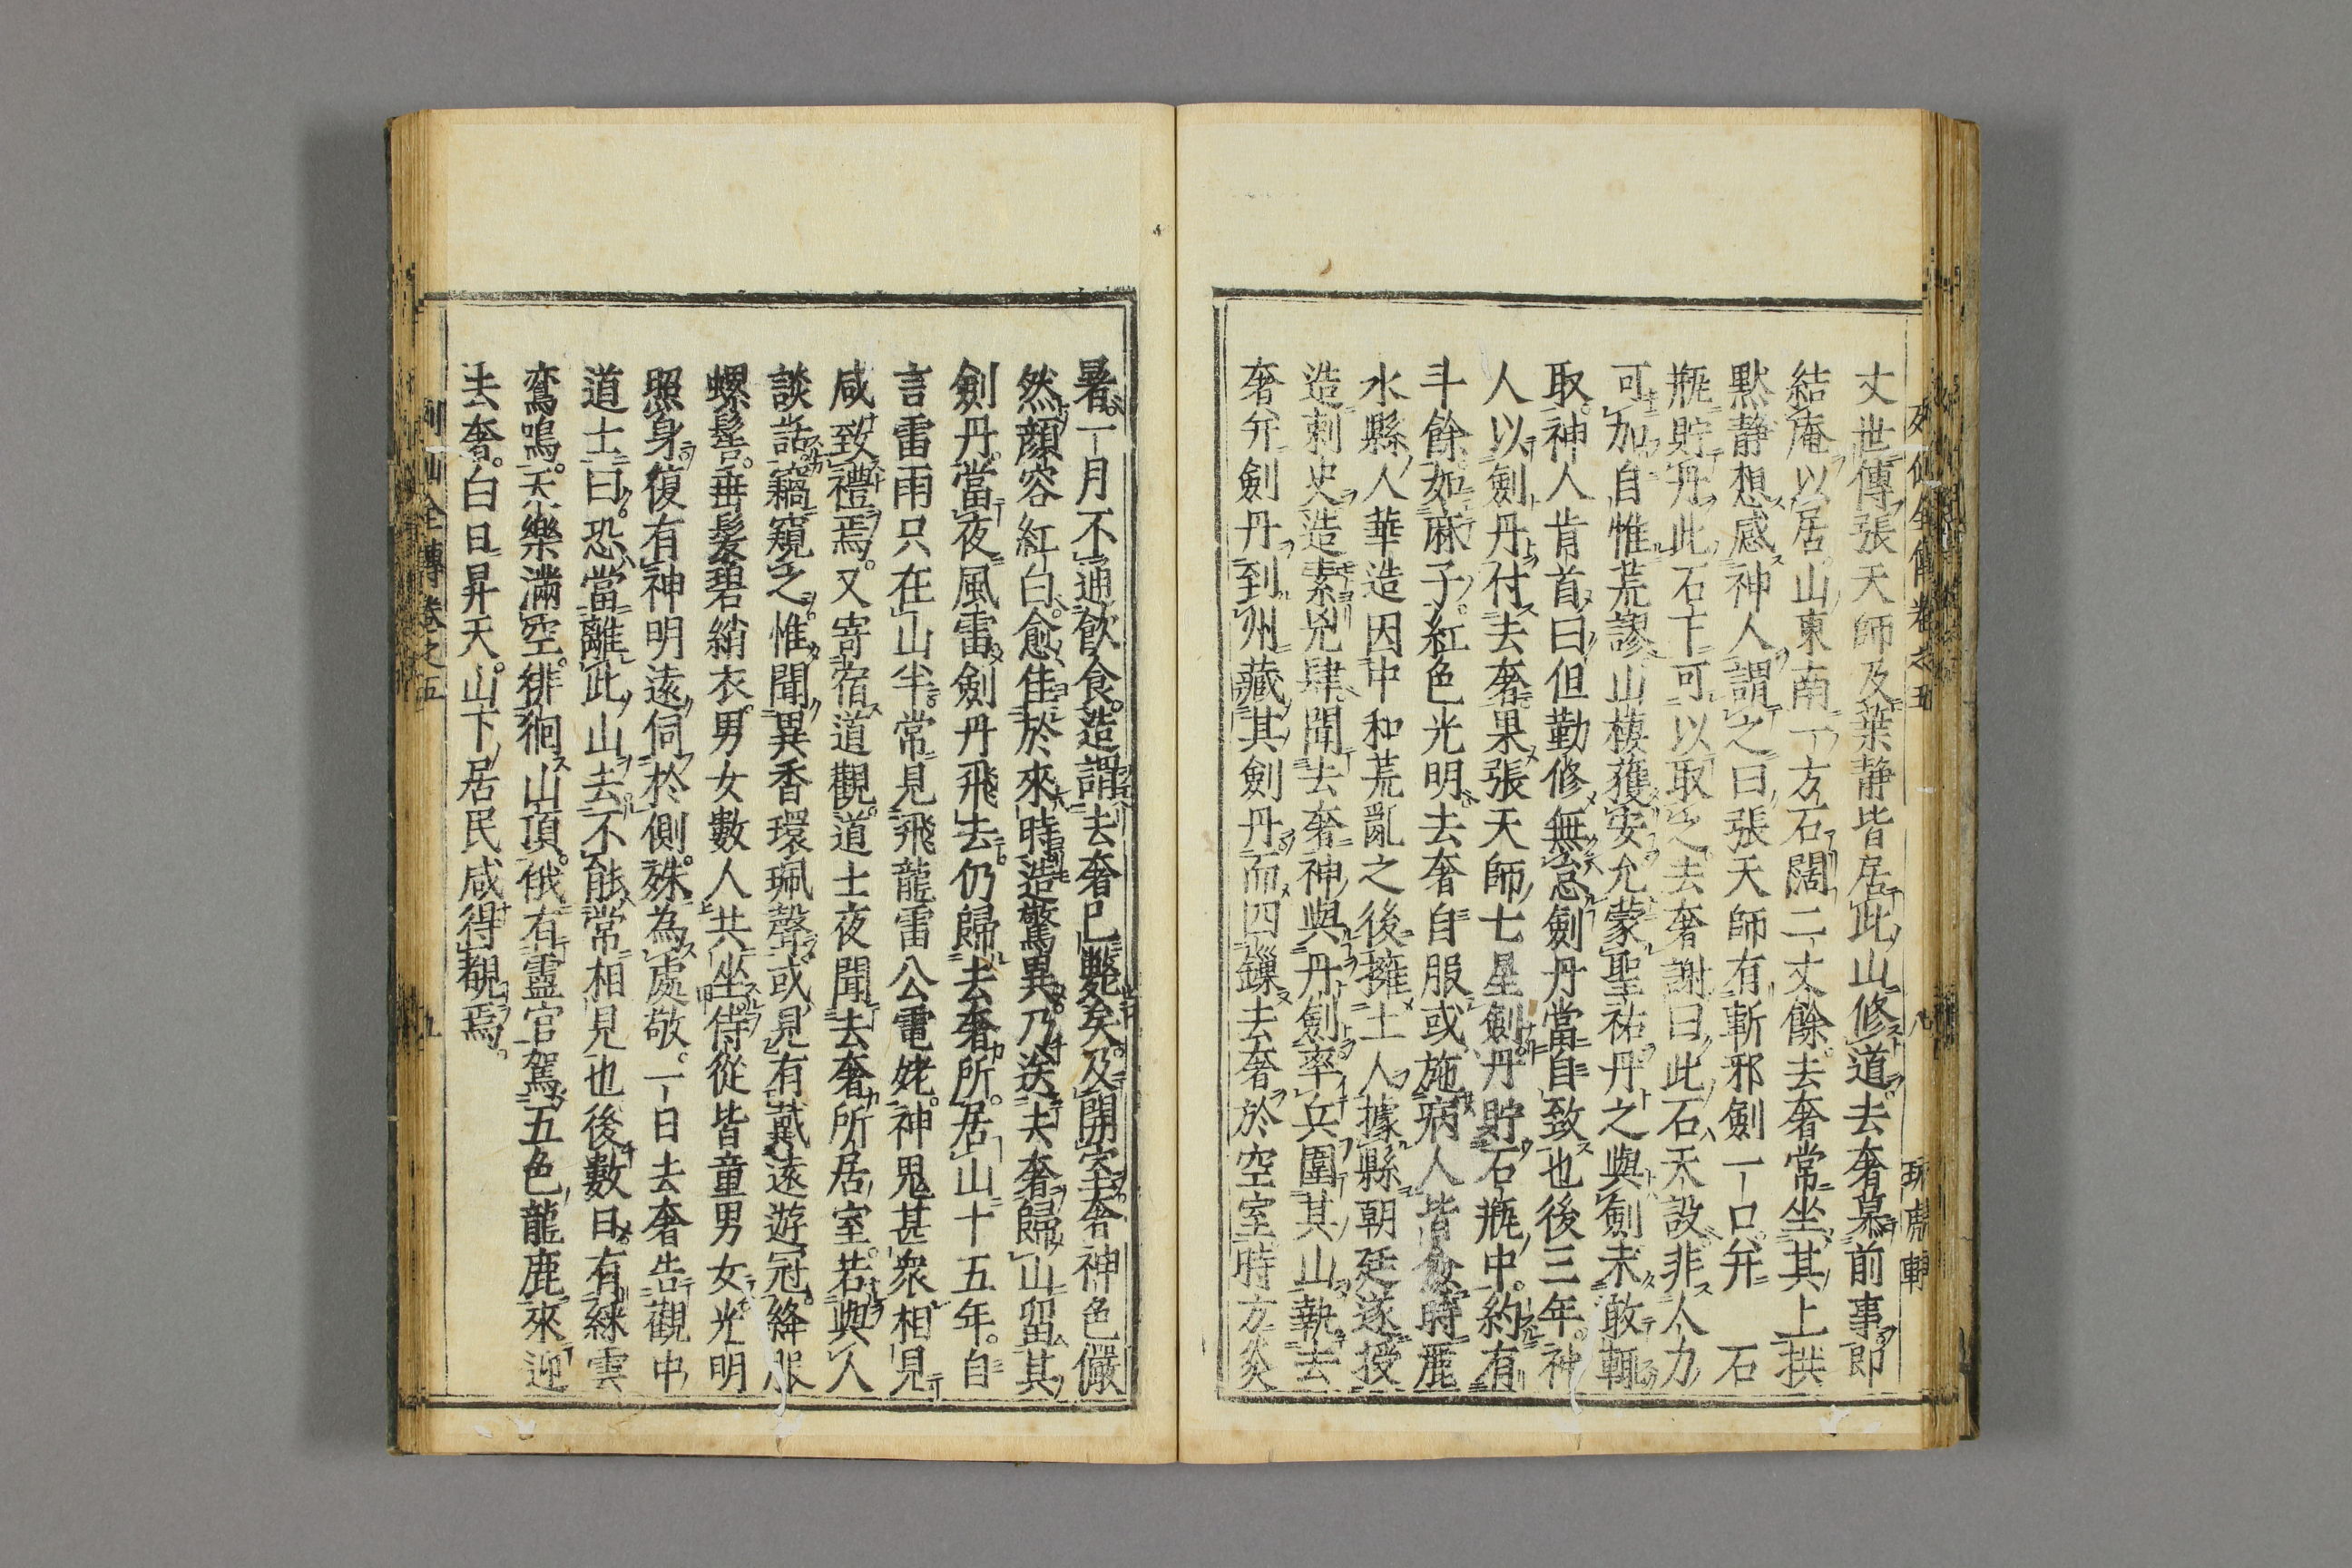 列仙全傳卷之五
丈世傳張天師及葉静皆居此山修道去奢慕前事即
結庵以居山東南一方石闊二丈餘去奢常坐其上拱
黙静想感神人謂之曰張天師有斬邪劍一口弁石
瓶貯丹此石下可以取之去奢謝曰此石天設非人力
可加自惟荒謬山棲獲安允蒙聖祐丹之與劍未敢輒
取神人肯首曰但勤修無怠劍丹當自致也後三年神
人以劍丹付去奢果張天師七星劍丹貯石瓶中約有
斗餘如麻子紅色光明去奢自服或施病人皆愈時麗
水縣人華造因中和荒亂之後擁土人據縣朝廷遂授
造刺史造素兇肆聞去奢神與丹劍率兵圍其山執去
奢弁劍丹到州藏其劍丹而四鏁去奢於空室時方炎
暑一月不通飲食造謂去奢已斃矣及開室奢神色儼
然顔容紅白愈佳於來時造驚異乃送去奢歸山留其
劍丹當夜風雷劍丹飛去仍歸去奢所居山十五年自
言雷雨只在山半常見飛龍雷公電姥神鬼甚衆相見
咸致禮焉又寄宿道觀道士夜聞去奢所居室若與人
談話竊窺之惟聞異香環珮聲或見有戴遠遊冠絳服
螺髻垂髪碧綃衣男女數人共坐侍從皆童男女光明
照身復有神明遠伺於側殊為處敬一日去奢告觀中
道士曰恐當離此山去不能常相見也後數日有綵雲
鸞鳴天樂滿空徘徊山頂俄有靈官駕五色龍鹿來迎
去奢白日昇天山下居民咸得覩焉
列仙全傳卷之五